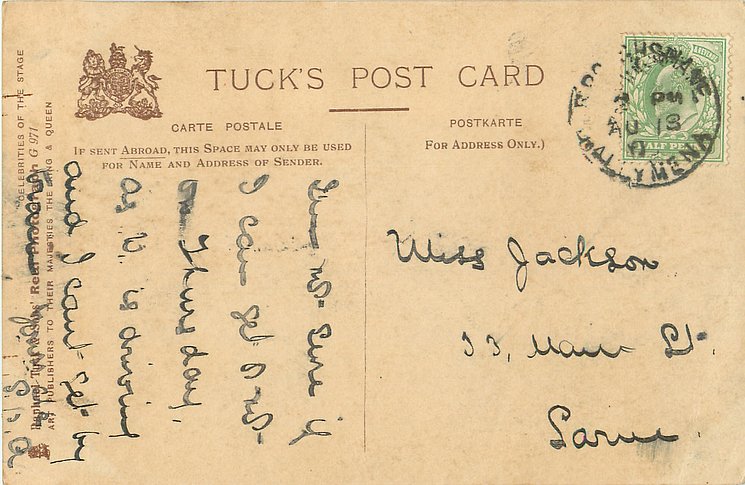 TUCK'S POST CARD
CARTE POSTALE
POSTKARTE
IF SENT ABROAD, THIS SPACE MAY ONLY BE USED
FOR NAME AND ADDRESS OF SENDER.
FOR ADDRESS ONLY.)
"CELEBRITIES OF THE STAGE
Raphael Tuck & Sons' Real Photograph G 971
ART PUBLISHERS TO THEIR MAJESTIES THE KING & QUEEN
HALF PENNY
BALLYMENA
AU 18
Miss Jackson
33, Main St.
Larne.
sure if
I can get
on Thursday,
as W. is driving
and I cant get by